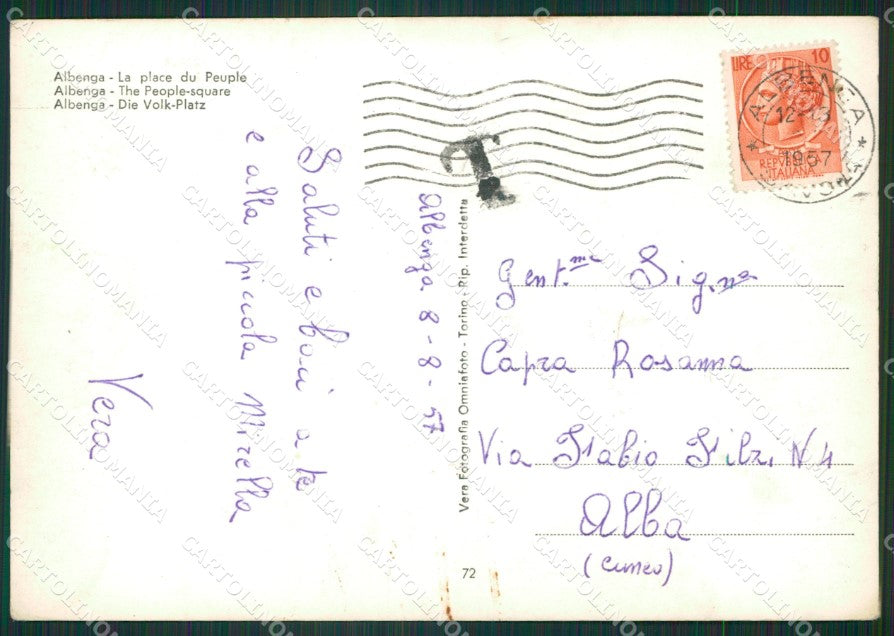 Albenga - La place du Peuple
Albenga - The People-square
Albenga - Die Volk-Platz
Saluti e baci a te
e alla piccola Mirella
Vera
Albenga 8-8-57
Vera Fotografia Omniafoto - Torino - Rip. Interdetta
T
LIRE 10
REPVBBLICA
ITALIANA
ALBENGA
12-13
1957
Gent.me Sig.na
Capra Rosanna
Via Fabio Filzi N 4
Alba
(Cuneo)
72
CARTOLINOMANIA